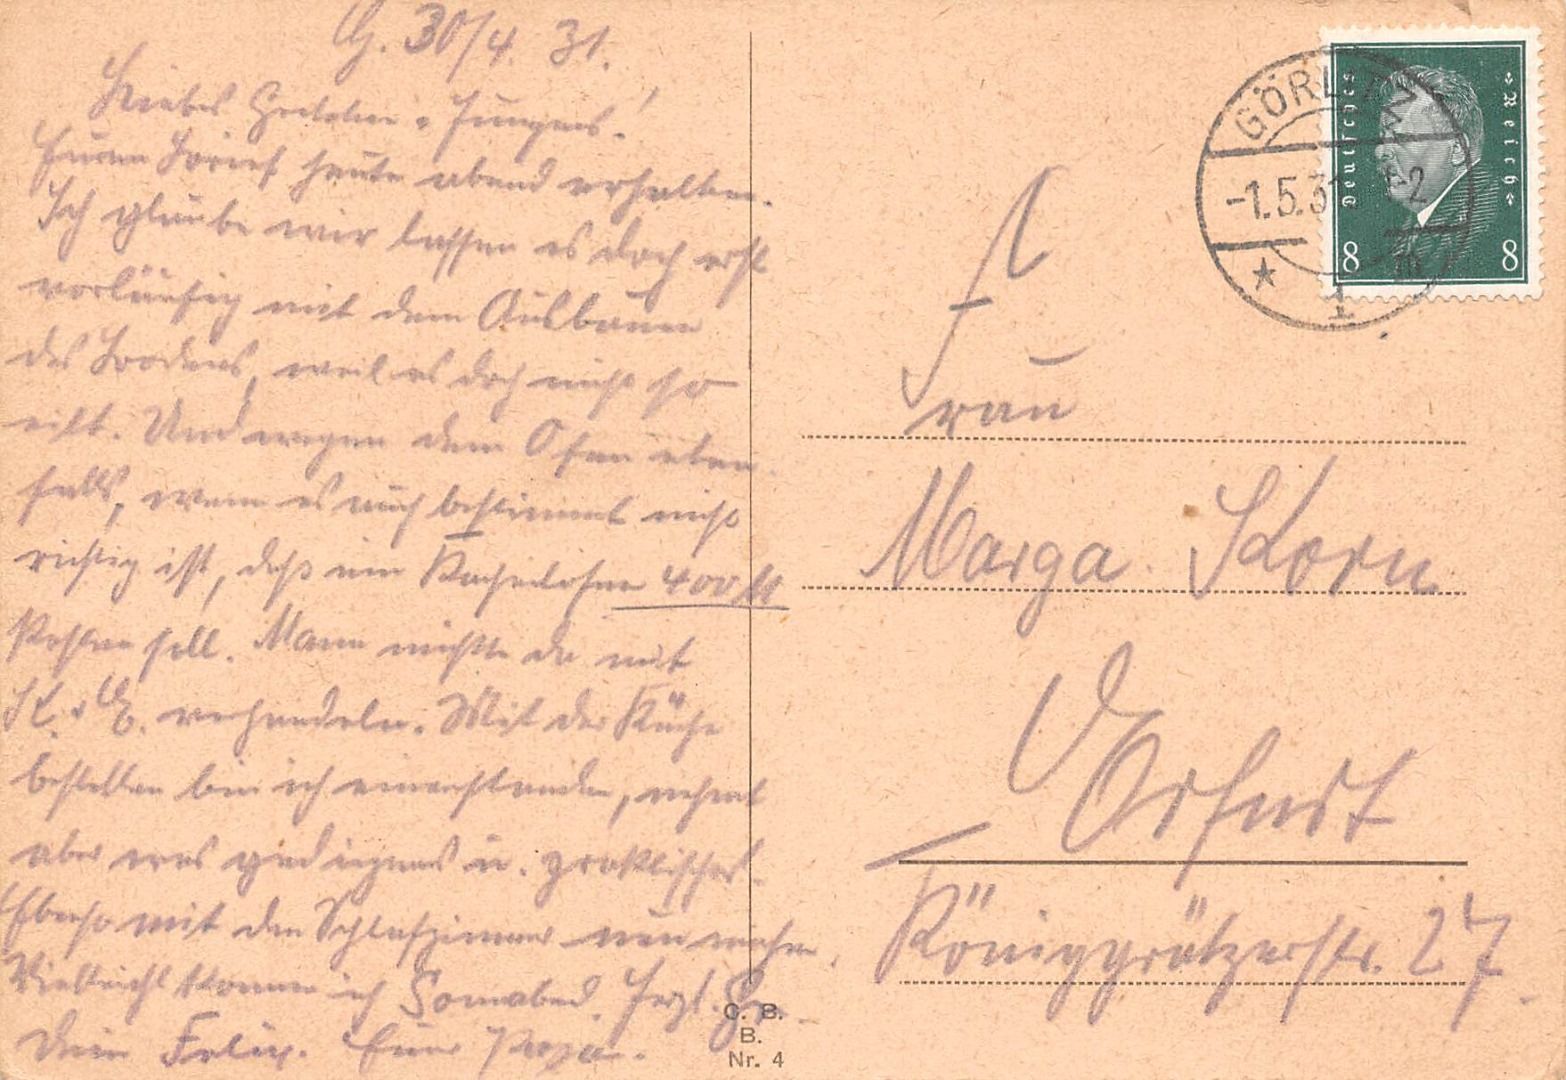 G. 30/4. 31.
Liebes Gretelein u Jungens!
Euren Brief heute abend erhalten.
Ich glaube wir lassen es doch erst
vorläufig mit dem Ausbauen
des Bodens, weil es doch nicht so
eilt. Und wegen dem Ofen eben-
falls, wenn es auch bestimmt nicht
richtig ist, daß ein Kachelofen 400 M
kosten soll. Mann müßte da mit
verhandeln. Mit der Küche
bestellen bin ich einverstanden, nehmt
aber was gediegenes u. praktisches.
Ebenso mit den Schlafzimmer neu machen.
Vielleicht komme ich Sonnabend. Herzl. Gr.
Dein Felix. Euer Papa.
Frau
Marga Korn
Erfurt
Königgrätzerstr. 27
GÖRLITZ
-1.5.31
1
Deutsches Reich
8 8
C. B.
B.
Nr. 4